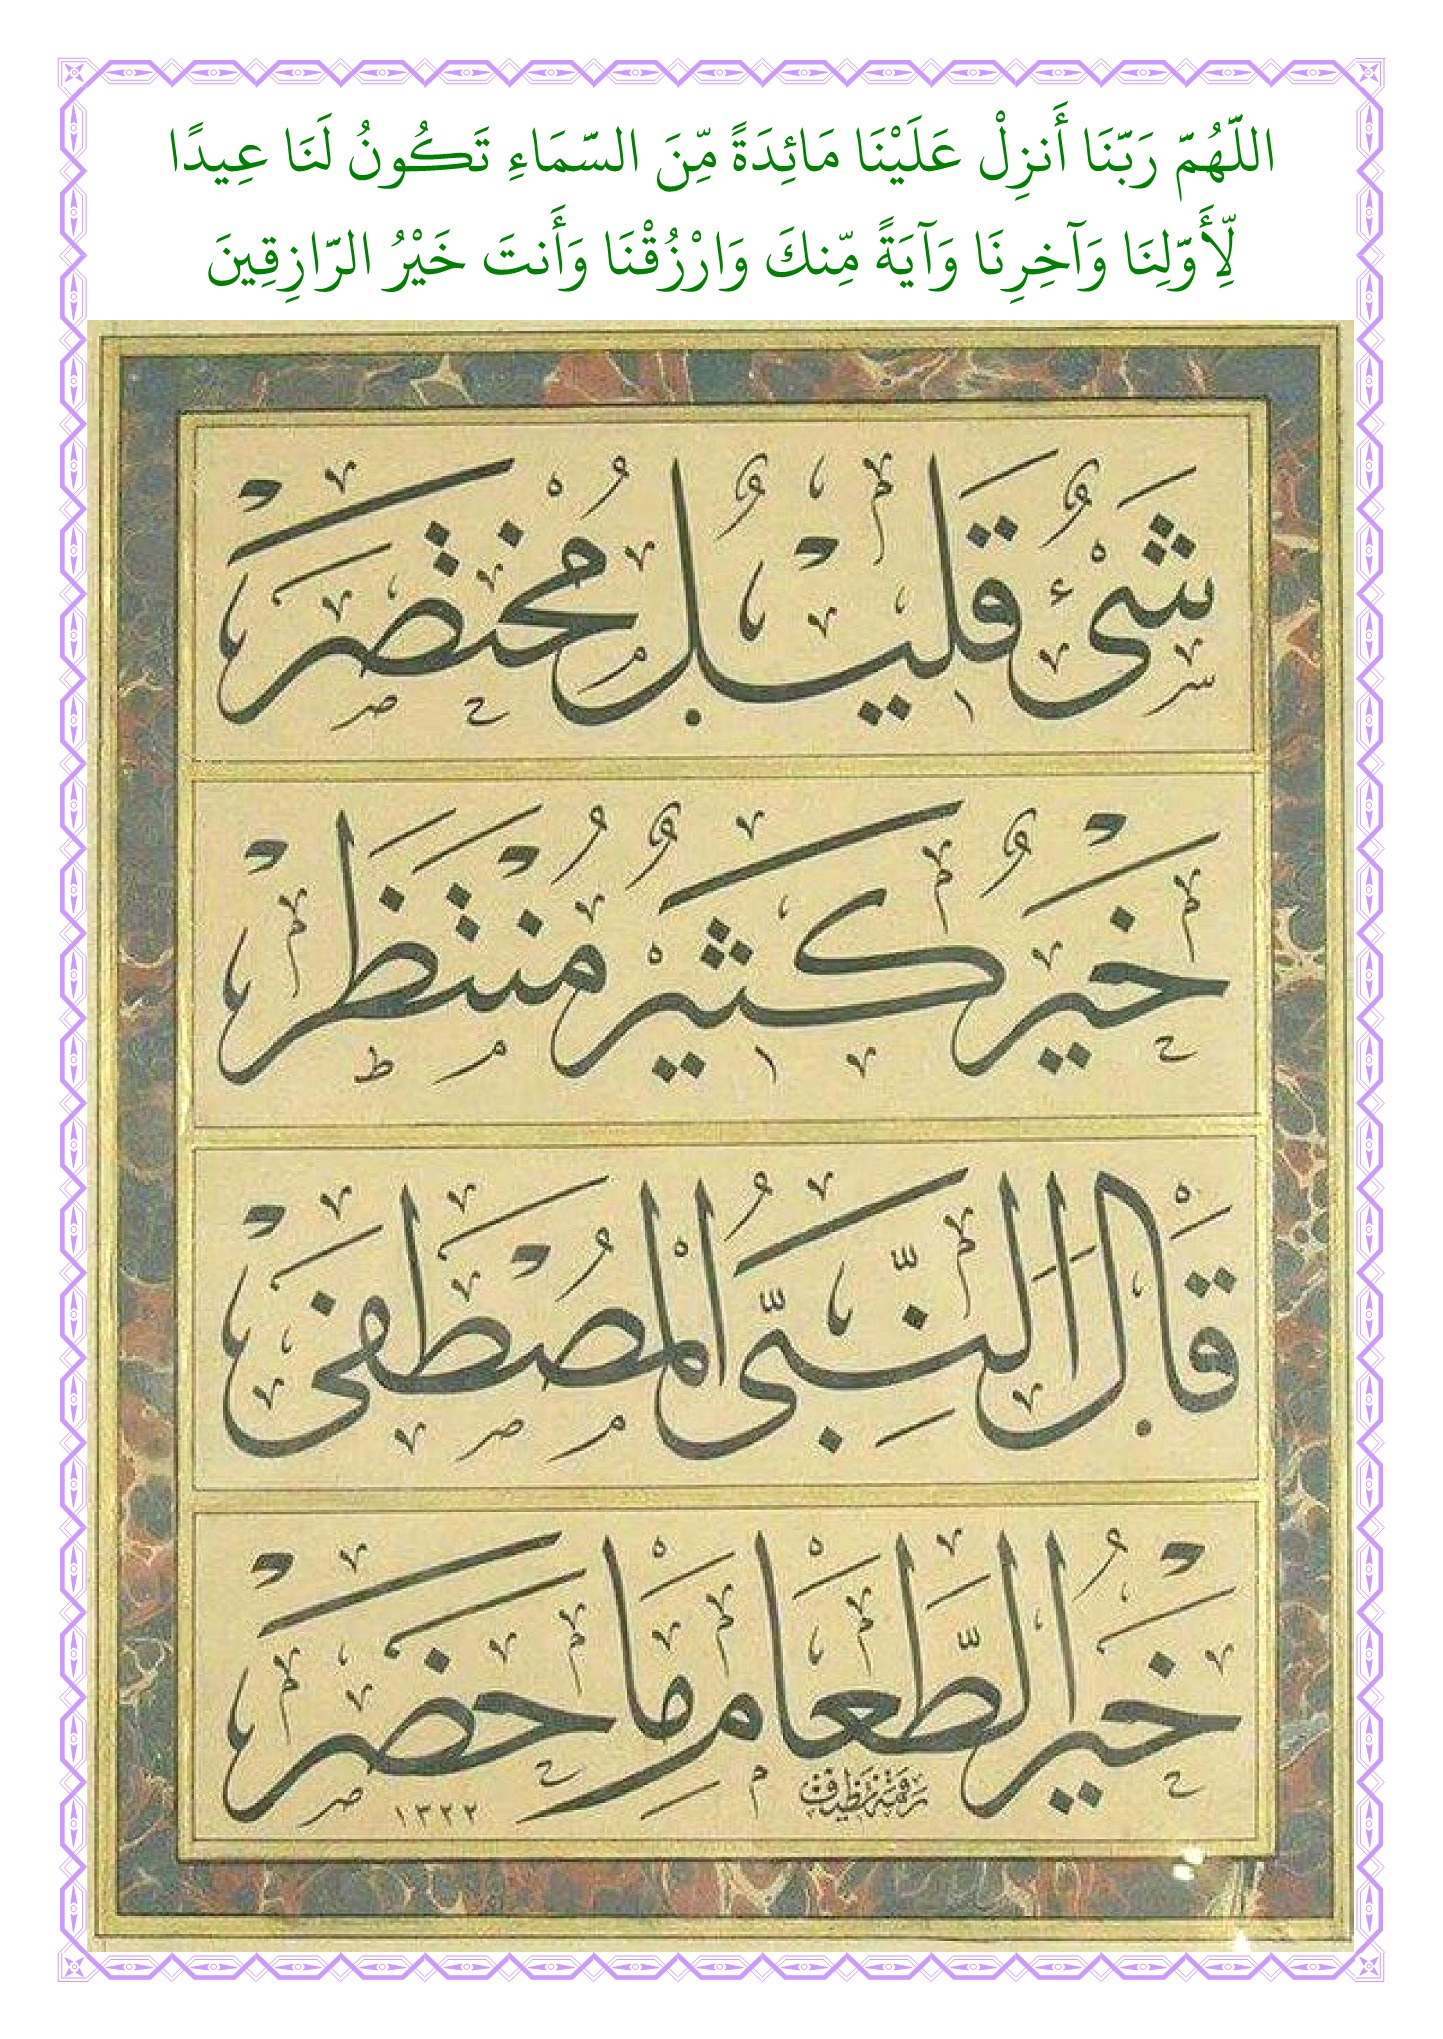 اللّهُمّ رَبّنَا أَنزِلْ عَلَيْنَا مَائِدَةً مّنَ السّمَاءِ تَكُونُ لَنَا عِيدًا
لّأَوّلِنَا وَآخِرِنَا وَآيَةً مّنكَ وَارْزُقْنَا وَأَنتَ خَيْرُ الرّازِقِينَ
شَىْءٌ قَلِيلٌ مُخْتَصَرْ
خَيْرٌ كَثِيرٌ مُنْتَظَرْ
قَالَ النَّبِىُّ الْمُصْطَفَى
خَيْرُ الطَّعَامِ مَا حَضَرْ
رقمه نظيف
١٣٢٢